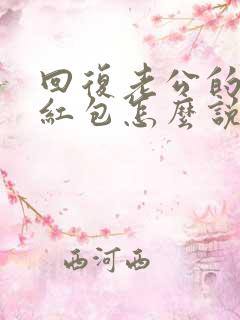 回復老公的
紅包怎麼說
西河西